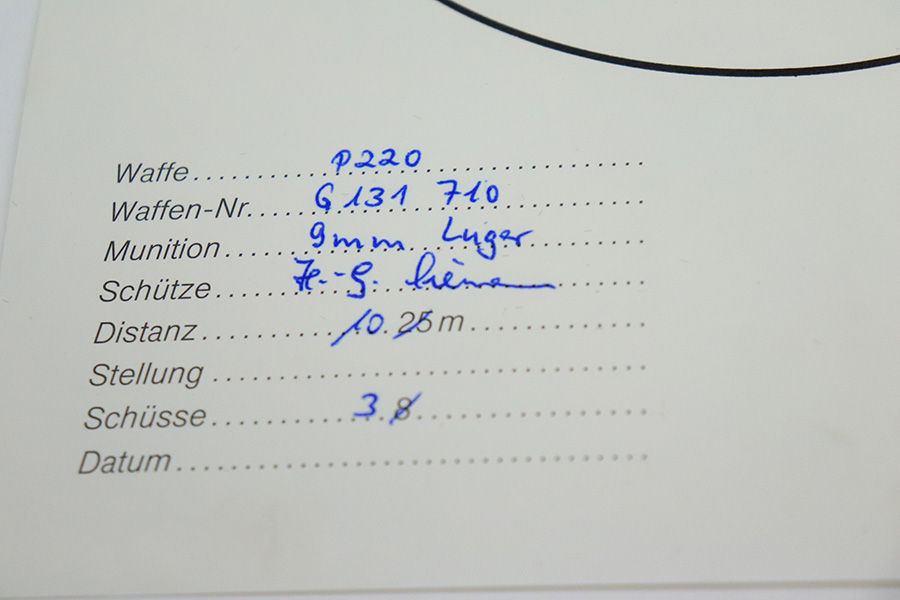 Waffe P220
Waffen-Nr. G 131 710
Munition 9mm Luger
Schütze H.-G.
Distanz 10 25 m
Stellung
Schüsse 3 8
Datum